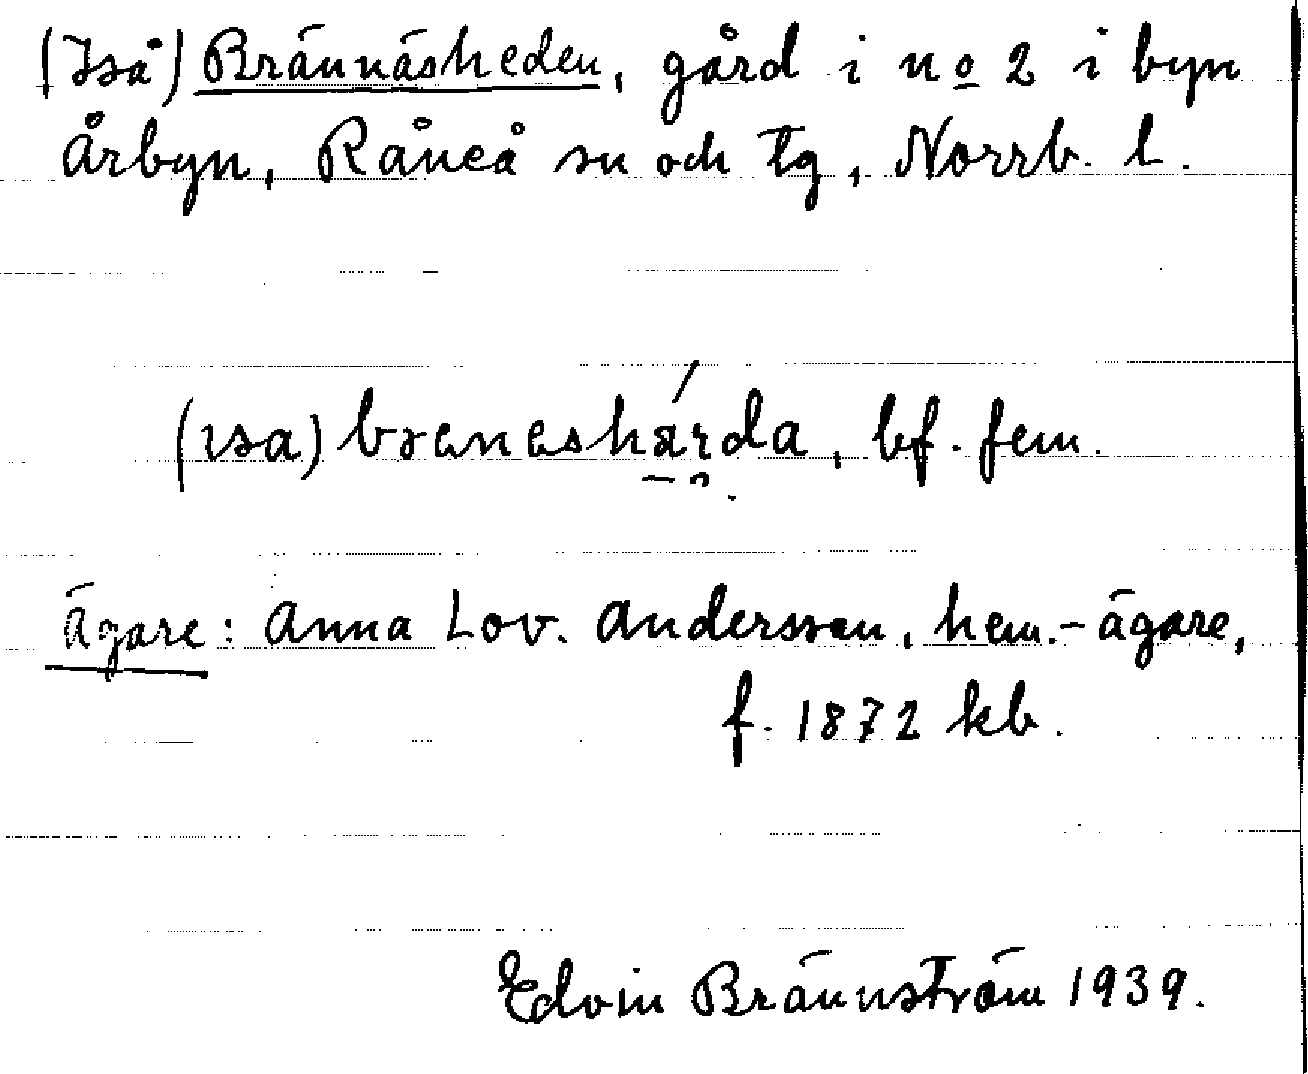 (Iså) Brännäsheden, gård i no 2 i byn
Årbyn, Råneå sn och tg, Norrb. l.
(ısa) breneshárda, bf. fem.
ägare: Anna Lov. Andersson, hem.-ägare,
f. 1872 kb.
Edvin Brännström 1939.